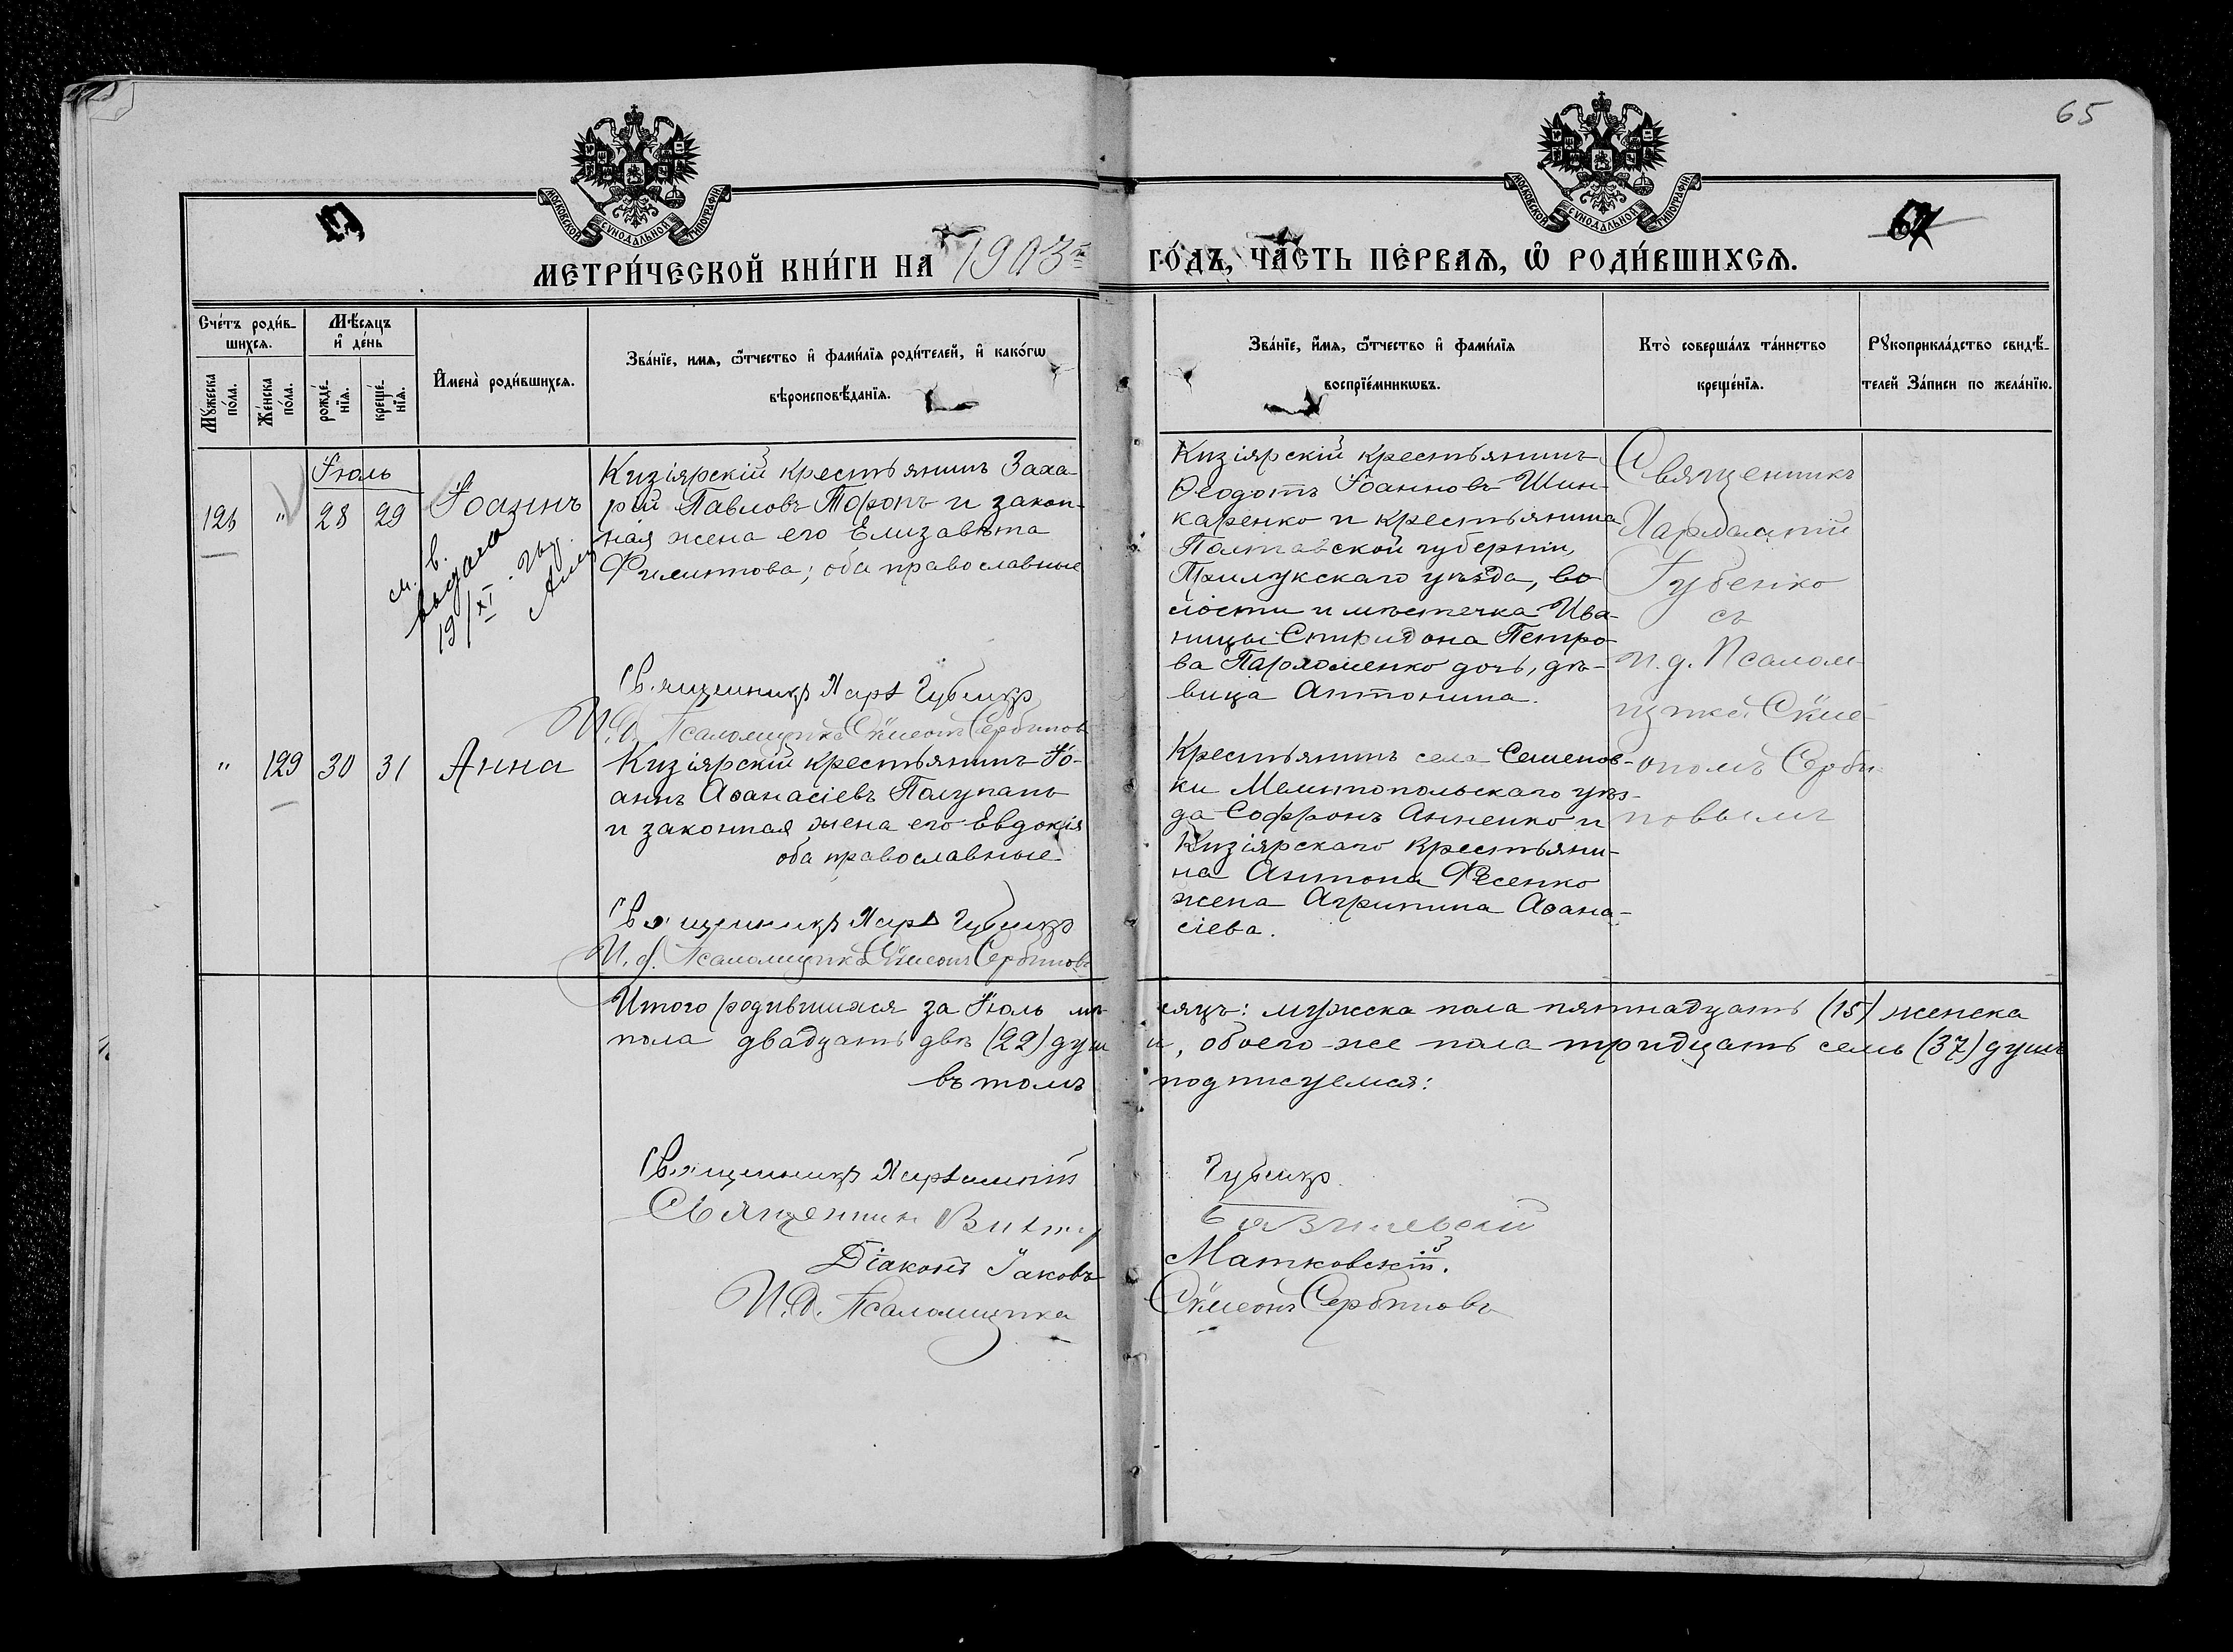 65
МОСКОВСКОЙ СѴНОДАЛЬНОЙ ТИПОГРАФІИ
МОСКОВСКОЙ СѴНОДАЛЬНОЙ ТИПОГРАФІИ
МЕТРИ́ЧЕСКОЙ КНИ́ГИ НА 1903й
ГО́ДЪ, ЧА́СТЬ ПЕ́РВАѦ, Ѡ РОДИ́ВШИХСѦ.
Сче́тъ роди́в-
шихсѧ.
Мꙋ́жеска по́ла.
Же́нска по́ла.
Мѣ́сѧцъ
и҆ де́нь
рожде́-
нїѧ.
креще́-
нїѧ.
И҆мена̀ роди́вшихсѧ.
Зва́нїе, имѧ, ѻ҆́тчество и҆ фами́лїѧ роди́телей, и҆ како́гѡ
вѣроисповѣ́данїѧ.
Зва́нїе, и҆́мѧ, ѻ҆́тчество и҆ фами́лїѧ
воспрїе́мникѡвъ.
Кто̀ соверша́лъ та́инство
креще́нїѧ.
Рꙋкоприкла́дство свидѣ́-
телей За́писи по жела́нїю.
Іюль
128 " 28 29 Іоаннъ
м. в.
выдана
19/XI
Кизіярскій крестьянинъ Заха-
рій Павловъ Торопъ и закон-
ная жена его Елизавѣта
Филиппова; оба православные
Священникъ Харл Губенко
И.д. Псаломщика Сѵмеонъ Сербиновъ
Кизіярскій крестьянинъ
Ѳеодотъ Іоанновъ Шин-
каренко и крестьянина
Полтавской губерніи,
Прилукскаго уѣзда, во-
лости и мѣстечка Ива-
ницы Спиридона Петро-
ва Пархоменко дочь, дѣ-
вица Антонина.
Священникъ
Харлампій
Губенко
съ
и.д. Псалом-
щика Сѵме-
ономъ Серби-
новымъ
" 129 30 31 Анна
Кизіярскій крестьянинъ Іо-
аннъ Аѳанасіевъ Полупанъ
и законная жена его Евдокія
оба православные
Священникъ Харл Губенко
И.д. Псаломщика Сѵмеонъ Сербиновъ
Крестьянинъ села Семенов-
ки Мелитопольскаго уѣз-
да Софронъ Анненко и
Кизіярскаго крестьяни-
на Антона Фесенко
жена Агрипина Аѳана-
сіева.
Итого родившихся за Іюль мѣсяцъ: мужска пола пятнадцать (15) женска
пола двадцать двѣ (22) души, обоего же пола тридцать семь (37) душъ
въ томъ подписуемся:
Священникъ Харлампій Губенко
Священникъ
Діаконъ Іаковъ Матковскій.
И.д. Псаломщика Сѵмеонъ Сербиновъ